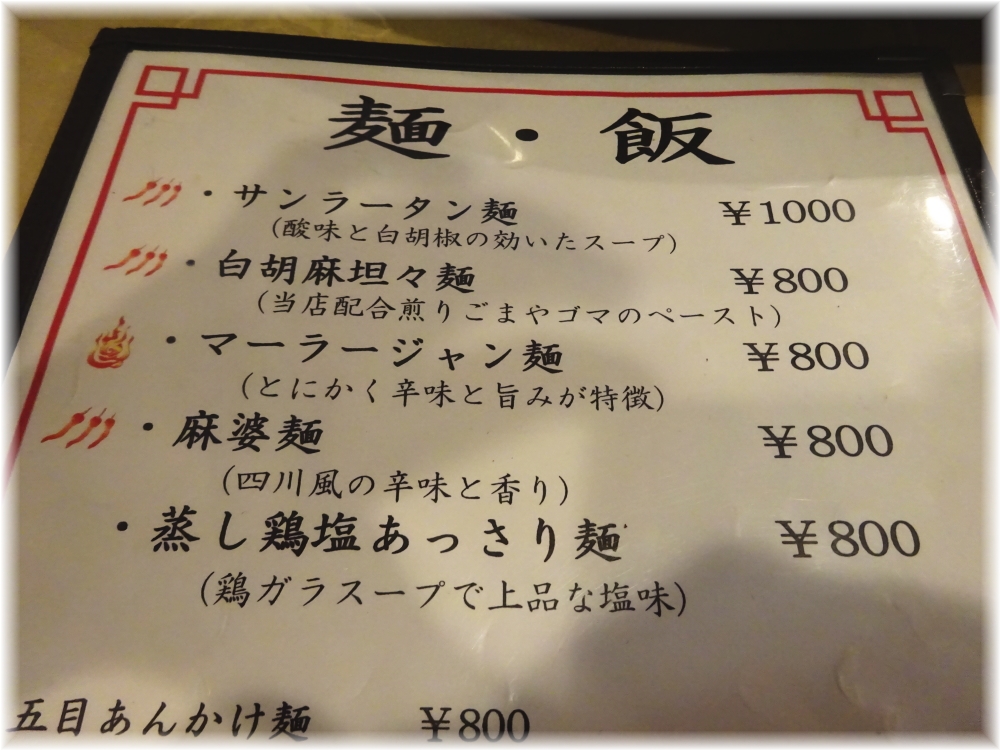 麺・飯
・サンラータン麺 ￥1000
(酸味と白胡椒の効いたスープ)
・白胡麻坦々麺 ￥800
(当店配合煎りごまやゴマのペースト)
・マーラージャン麺 ￥800
(とにかく辛味と旨みが特徴)
・麻婆麺 ￥800
(四川風の辛味と香り)
・蒸し鶏塩あっさり麺 ￥800
(鶏ガラスープで上品な塩味)
五目あんかけ麺 ￥800